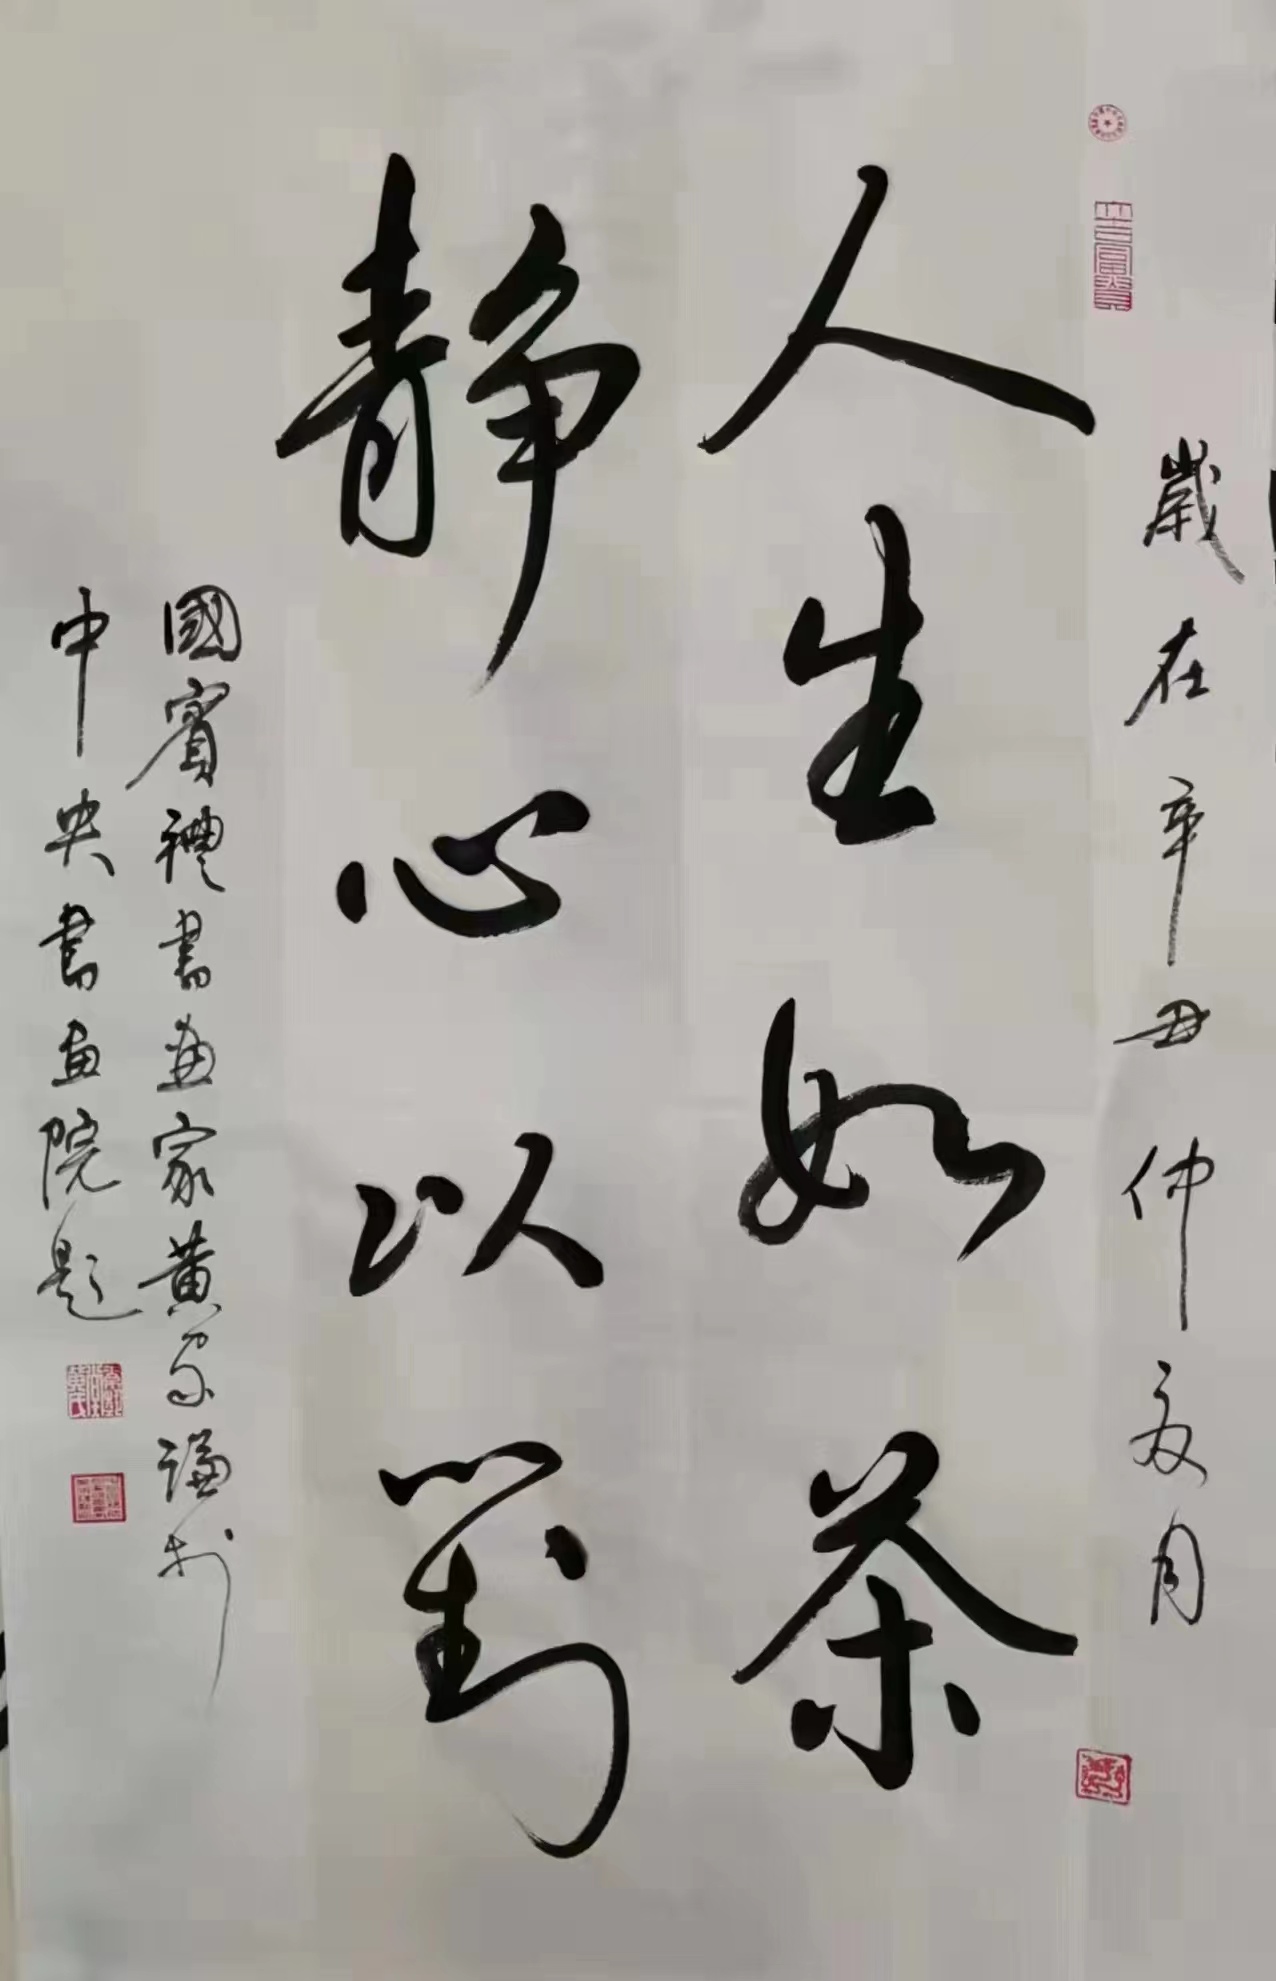 歲在辛丑仲夏月
人生如茶
静心以對
國賓禮書画家黄家謙於
中央書画院題